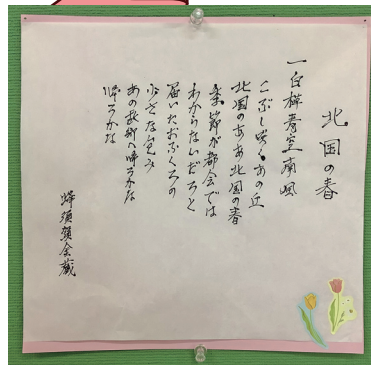 北国の春
一白樺青空南風
こぶし咲くあの丘
北国のああ北国の春
季節が都会では
わからないだろと
届いたおふくろの
小さな包み
あの故郷へ帰ろかな
帰ろかな
蜂須賀金蔵